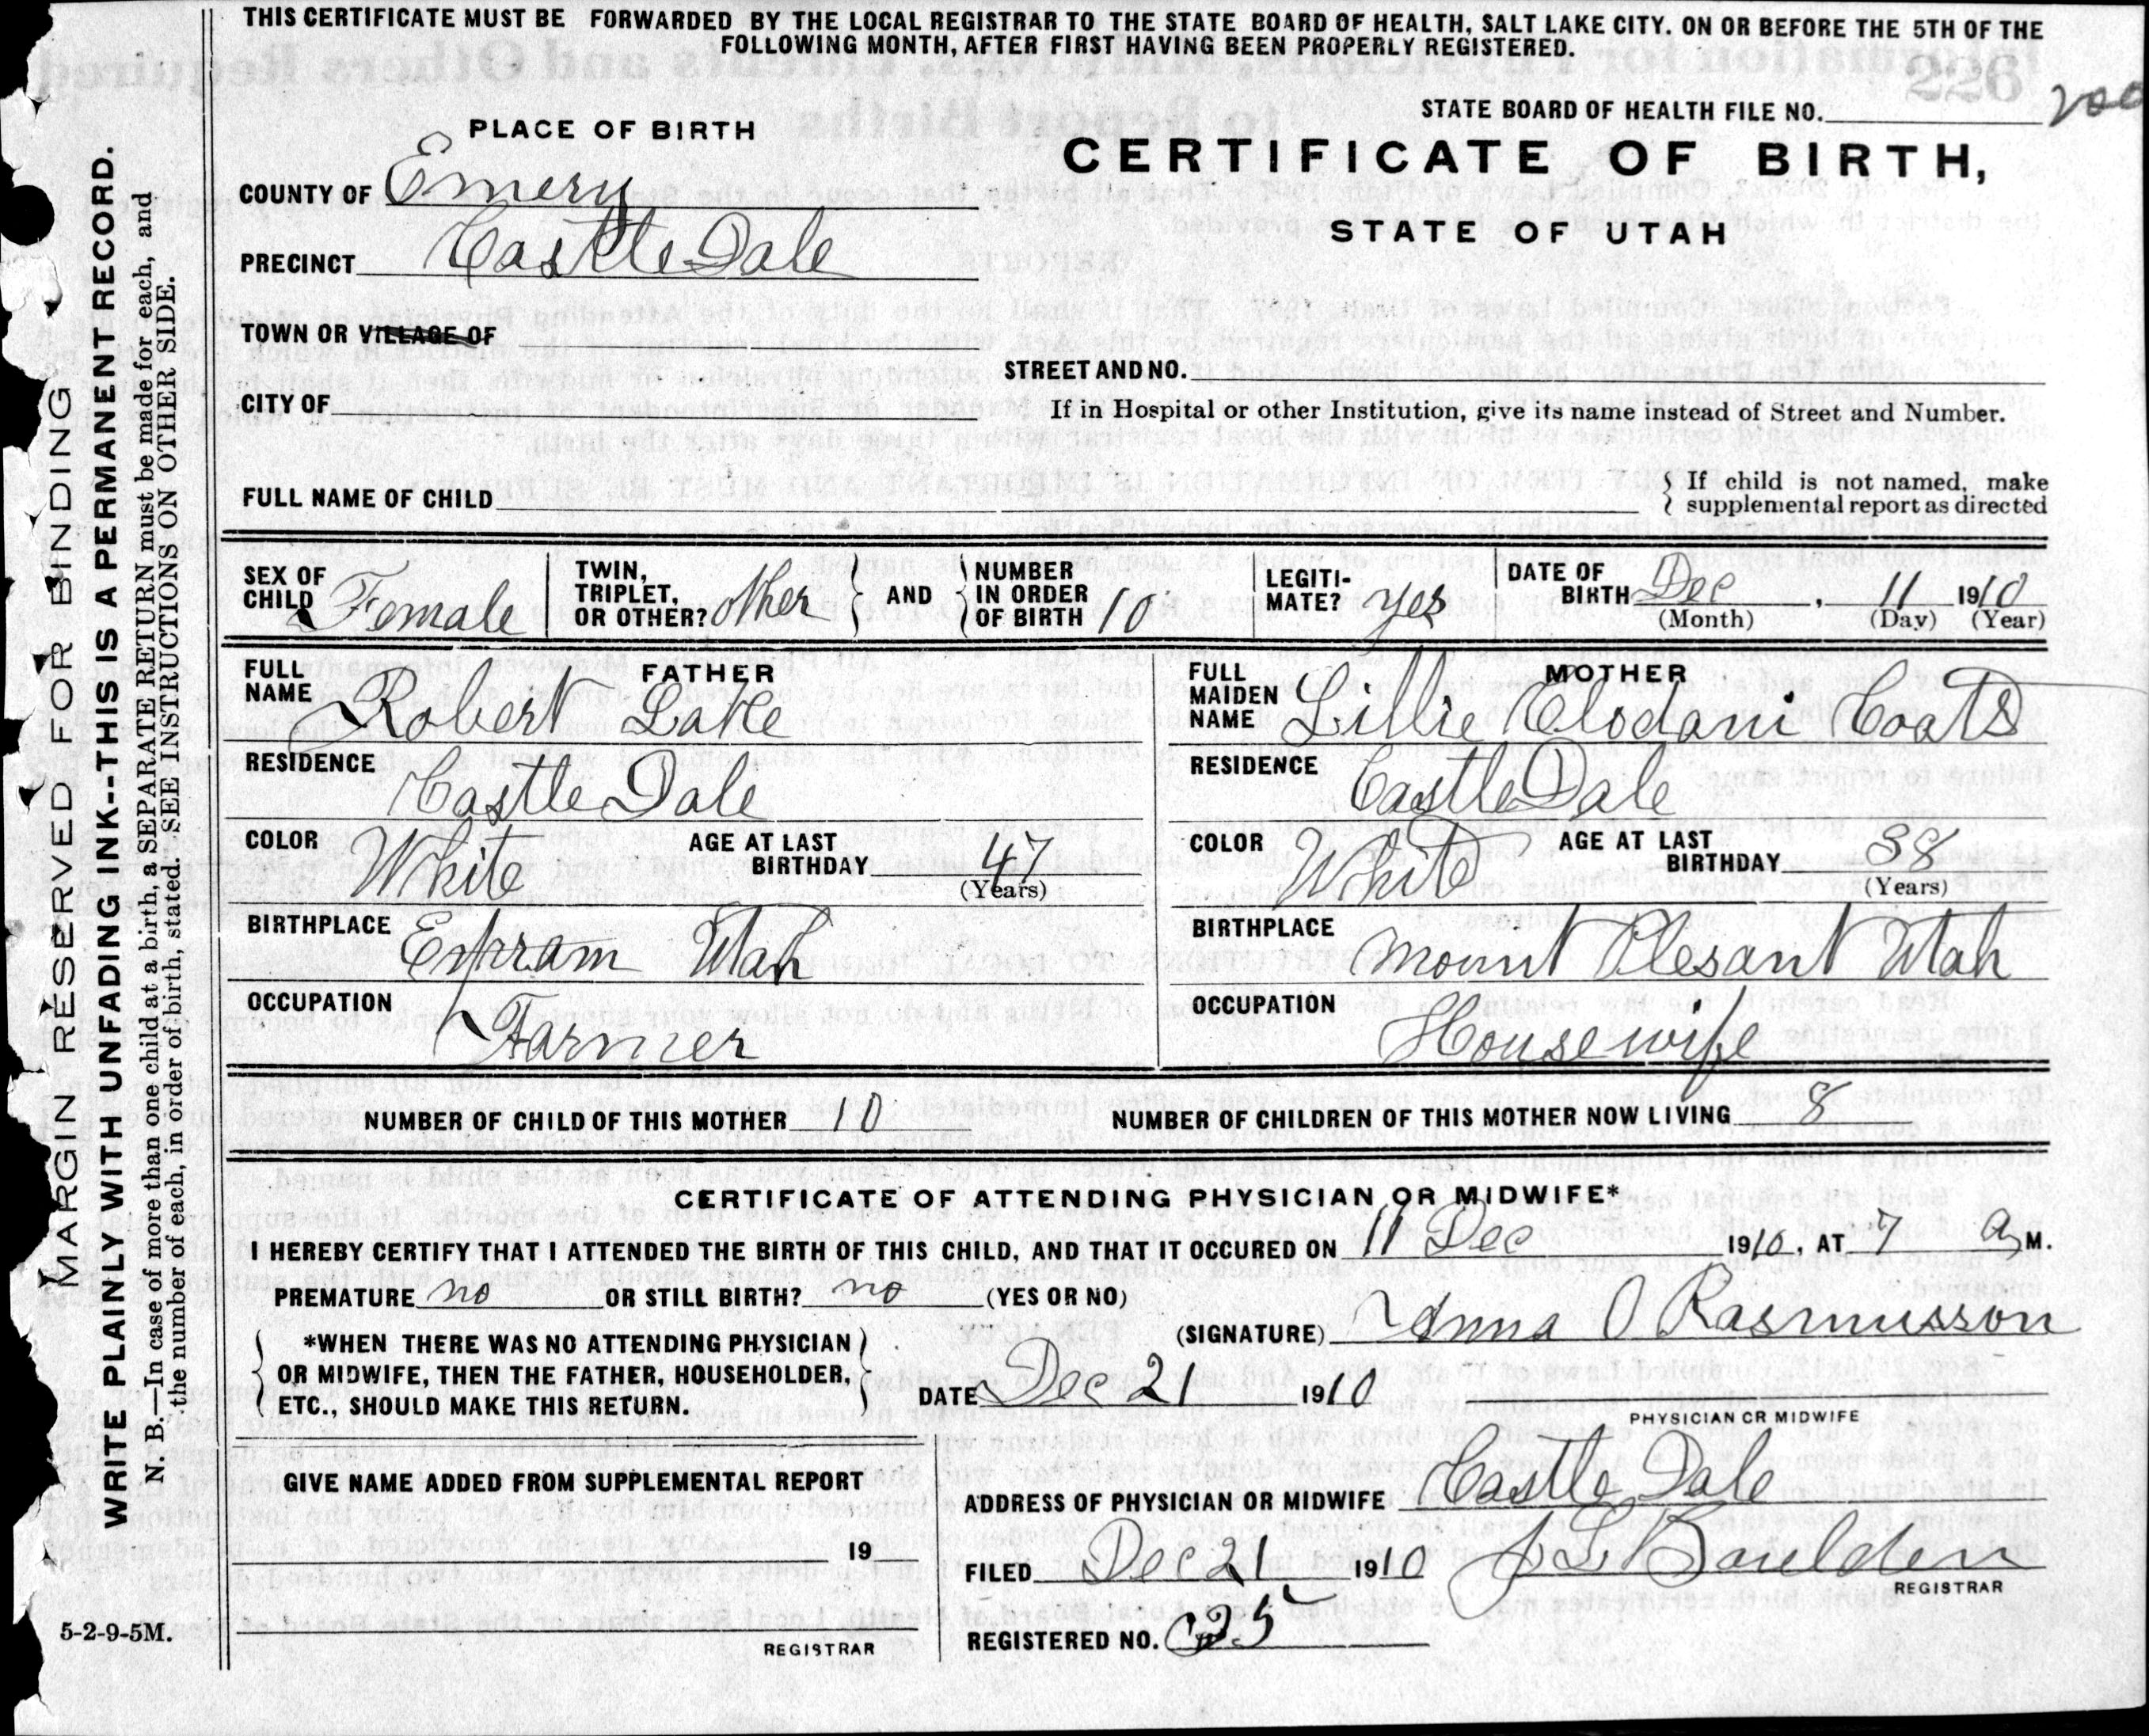 THIS CERTIFICATE MUST BE FORWARDED BY THE LOCAL REGISTRAR TO THE STATE BOARD OF HEALTH, SALT LAKE CITY. ON OR BEFORE THE 5TH OF THE
FOLLOWING MONTH, AFTER FIRST HAVING BEEN PROPERLY REGISTERED.
226
STATE BOARD OF HEALTH FILE NO. 200
PLACE OF BIRTH
CERTIFICATE OF BIRTH,
STATE OF UTAH
COUNTY OF Emery
PRECINCT Castle Dale
TOWN OR VILLAGE OF
STREET AND NO.
CITY OF
If in Hospital or other Institution, give its name instead of Street and Number.
FULL NAME OF CHILD
If child is not named, make
supplemental report as directed
SEX OF CHILD Female
TWIN, TRIPLET, OR OTHER? other
AND
NUMBER IN ORDER OF BIRTH 10
LEGITI-MATE? yes
DATE OF BIRTH Dec, 11 1910
(Month) (Day) (Year)
FATHER
FULL NAME Robert Lake
RESIDENCE
Castle Dale
COLOR White AGE AT LAST BIRTHDAY 47
(Years)
BIRTHPLACE
Epram Utah
OCCUPATION
Farmer
MOTHER
FULL MAIDEN NAME Lillie Clodani Coats
RESIDENCE
Castle Dale
COLOR White AGE AT LAST BIRTHDAY 38
(Years)
BIRTHPLACE
Mount Plesant Utah
OCCUPATION
Housewife
NUMBER OF CHILD OF THIS MOTHER 10 NUMBER OF CHILDREN OF THIS MOTHER NOW LIVING 8
CERTIFICATE OF ATTENDING PHYSICIAN OR MIDWIFE*
I HEREBY CERTIFY THAT I ATTENDED THE BIRTH OF THIS CHILD, AND THAT IT OCCURED ON 11 Dec 1910, AT 7 a M.
PREMATURE no OR STILL BIRTH? no (YES OR NO)
(SIGNATURE) Anna O Rasmusson
*WHEN THERE WAS NO ATTENDING PHYSICIAN
OR MIDWIFE, THEN THE FATHER, HOUSEHOLDER,
ETC., SHOULD MAKE THIS RETURN.
DATE Dec 21 1910
PHYSICIAN OR MIDWIFE
GIVE NAME ADDED FROM SUPPLEMENTAL REPORT
19
REGISTRAR
ADDRESS OF PHYSICIAN OR MIDWIFE Castle Dale
FILED Dec 21 1910 J L Boulden
REGISTRAR
REGISTERED NO. 25
MARGIN RESERVED FOR BINDING
WRITE PLAINLY WITH UNFADING INK--THIS IS A PERMANENT RECORD.
N. B.—In case of more than one child at a birth, a SEPARATE RETURN must be made for each, and
the number of each, in order of birth, stated. SEE INSTRUCTIONS ON OTHER SIDE.
5-2-9-5M.